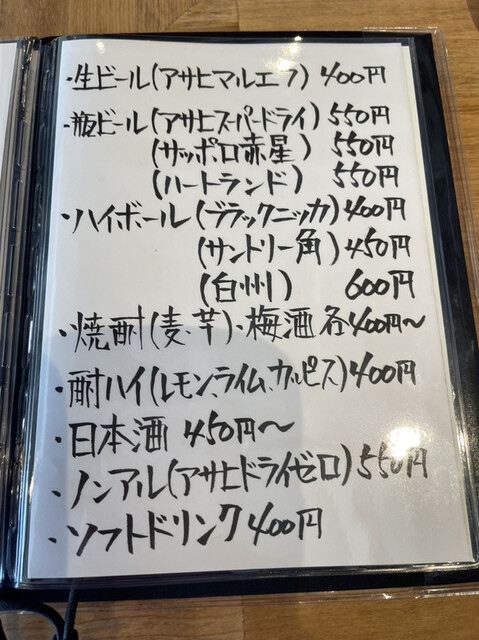 ・生ビール(アサヒマルエフ) 400円
・瓶ビール(アサヒスーパードライ) 550円
(サッポロ赤星) 550円
(ハートランド) 550円
・ハイボール(ブラックニッカ) 400円
(サントリー角) 450円
(白州) 600円
・焼酎(麦、芋)・梅酒 各400円〜
・酎ハイ(レモン、ライム、カルピス) 400円
・日本酒 450円〜
・ノンアル(アサヒドライゼロ) 550円
・ソフトドリンク 400円